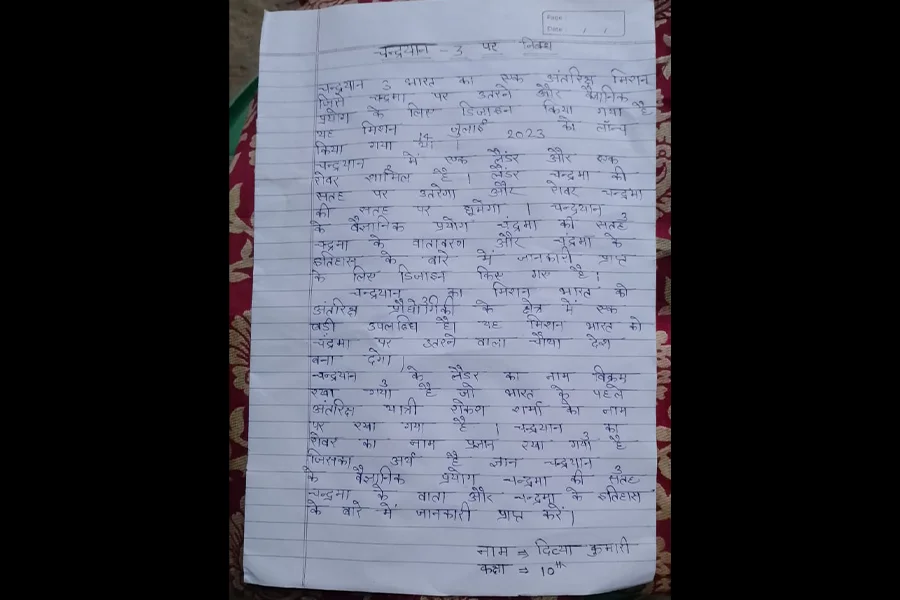 Page :
Date : / /
चन्द्रयान - 3 पर निबंध
चन्द्रयान 3 भारत का एक अंतरिक्ष मिशन
जिसे चन्द्रमा पर उतरने और वैज्ञानिक
प्रयोग के लिए डिजाइन किया गया है
यह मिशन 14 जुलाई 2023 को लॉन्च
किया गया था।
चन्द्रयान में एक लैंडर और एक
रोवर शामिल है। लैंडर चन्द्रमा की
सतह पर उतरेगा और रोवर चन्द्रमा
की सतह पर घूमेगा। चन्द्रयान
के वैज्ञानिक प्रयोग चंद्रमा की सतह
चन्द्रमा के वातावरण और चंद्रमा के
इतिहास के बारे में जानकारी प्राप्त
के लिए डिजाइन किए गए है।
चन्द्रयान 3 का मिशन भारत को
अंतरिक्ष प्रौद्योगिकी के क्षेत्र में एक
बड़ी उपलब्धि है। यह मिशन भारत को
चंद्रमा पर उतरने वाला चौथा देश
बना देगा।
चन्द्रयान 3 के लैंडर का नाम विक्रम
रखा गया है जो भारत के पहले
अंतरिक्ष यात्री राकेश शर्मा के नाम
पर रखा गया है। चन्द्रयान का
रोवर का नाम प्रज्ञान रखा गया है
जिसका अर्थ है ज्ञान चन्द्रयान
के वैज्ञानिक प्रयोग चन्द्रमा की सतह
चन्द्रमा के वाता और चन्द्रमा के इतिहास
के बारे में जानकारी प्राप्त करें।
नाम ⇒ दिव्या कुमारी
कक्षा ⇒ 10th